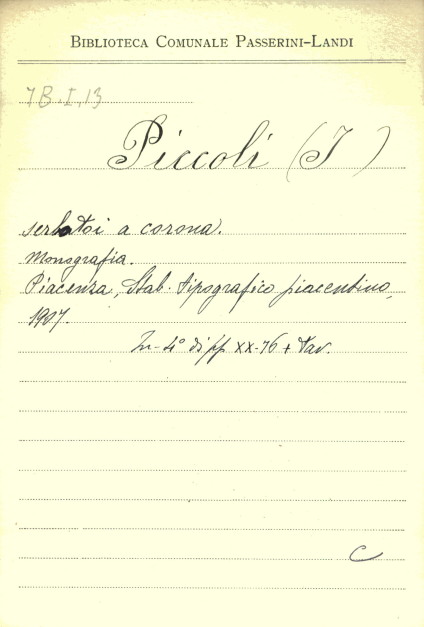 BIBLIOTECA COMUNALE PASSERINI-LANDI
7B.I,13
Piccoli (I)
serbatoi a corona.
Monografia.
Piacenza, Stab. tipografico piacentino,
1907.
In-4° di pp XX-76 + tav.
C